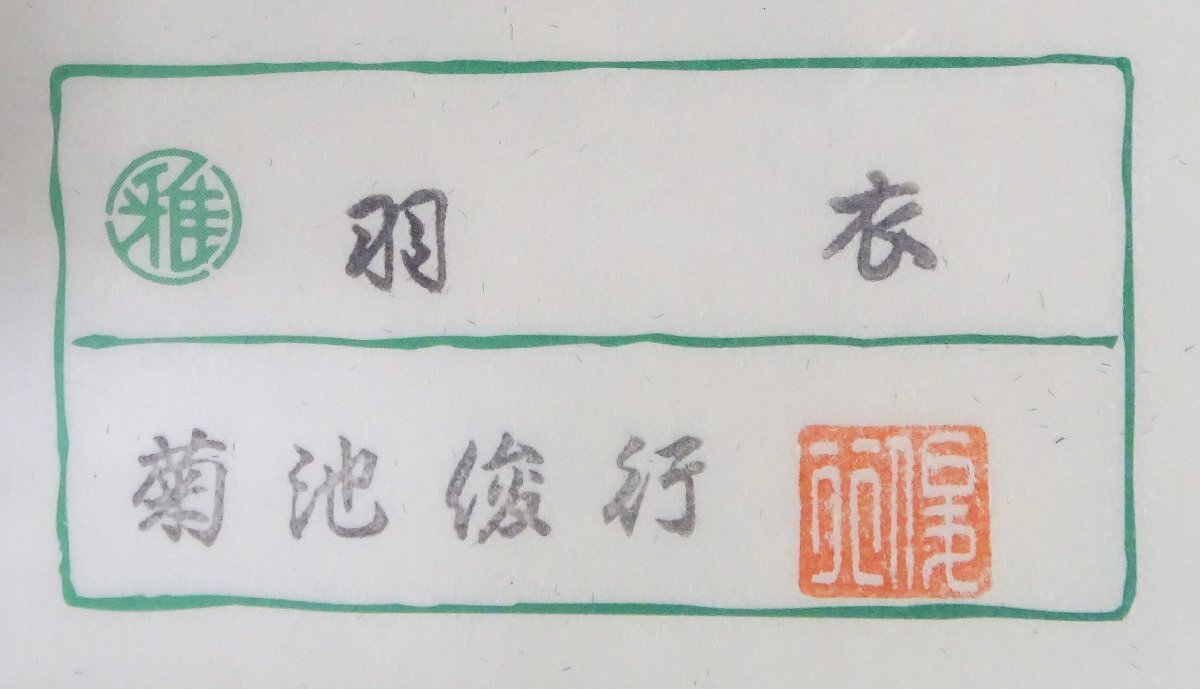 雅 羽 衣
菊池俊行
俊行